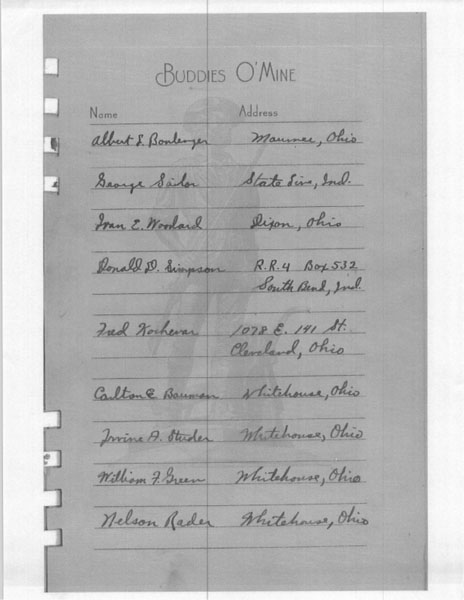 BUDDIES O'MINE
Name Address
Albert S. Bonlenger Maumee, Ohio
George Sailor State Line, Ind.
Ivan E. Woodard Dixon, Ohio
Donald D. Simpson R.R.4 Box 532
South Bend, Ind.
Fred Kochevar 1078 E. 141 St.
Cleveland, Ohio
Carlton E. Bauman Whitehouse, Ohio
Irvine A. Studer Whitehouse, Ohio
William F. Green Whitehouse, Ohio
Nelson Rader Whitehouse, Ohio